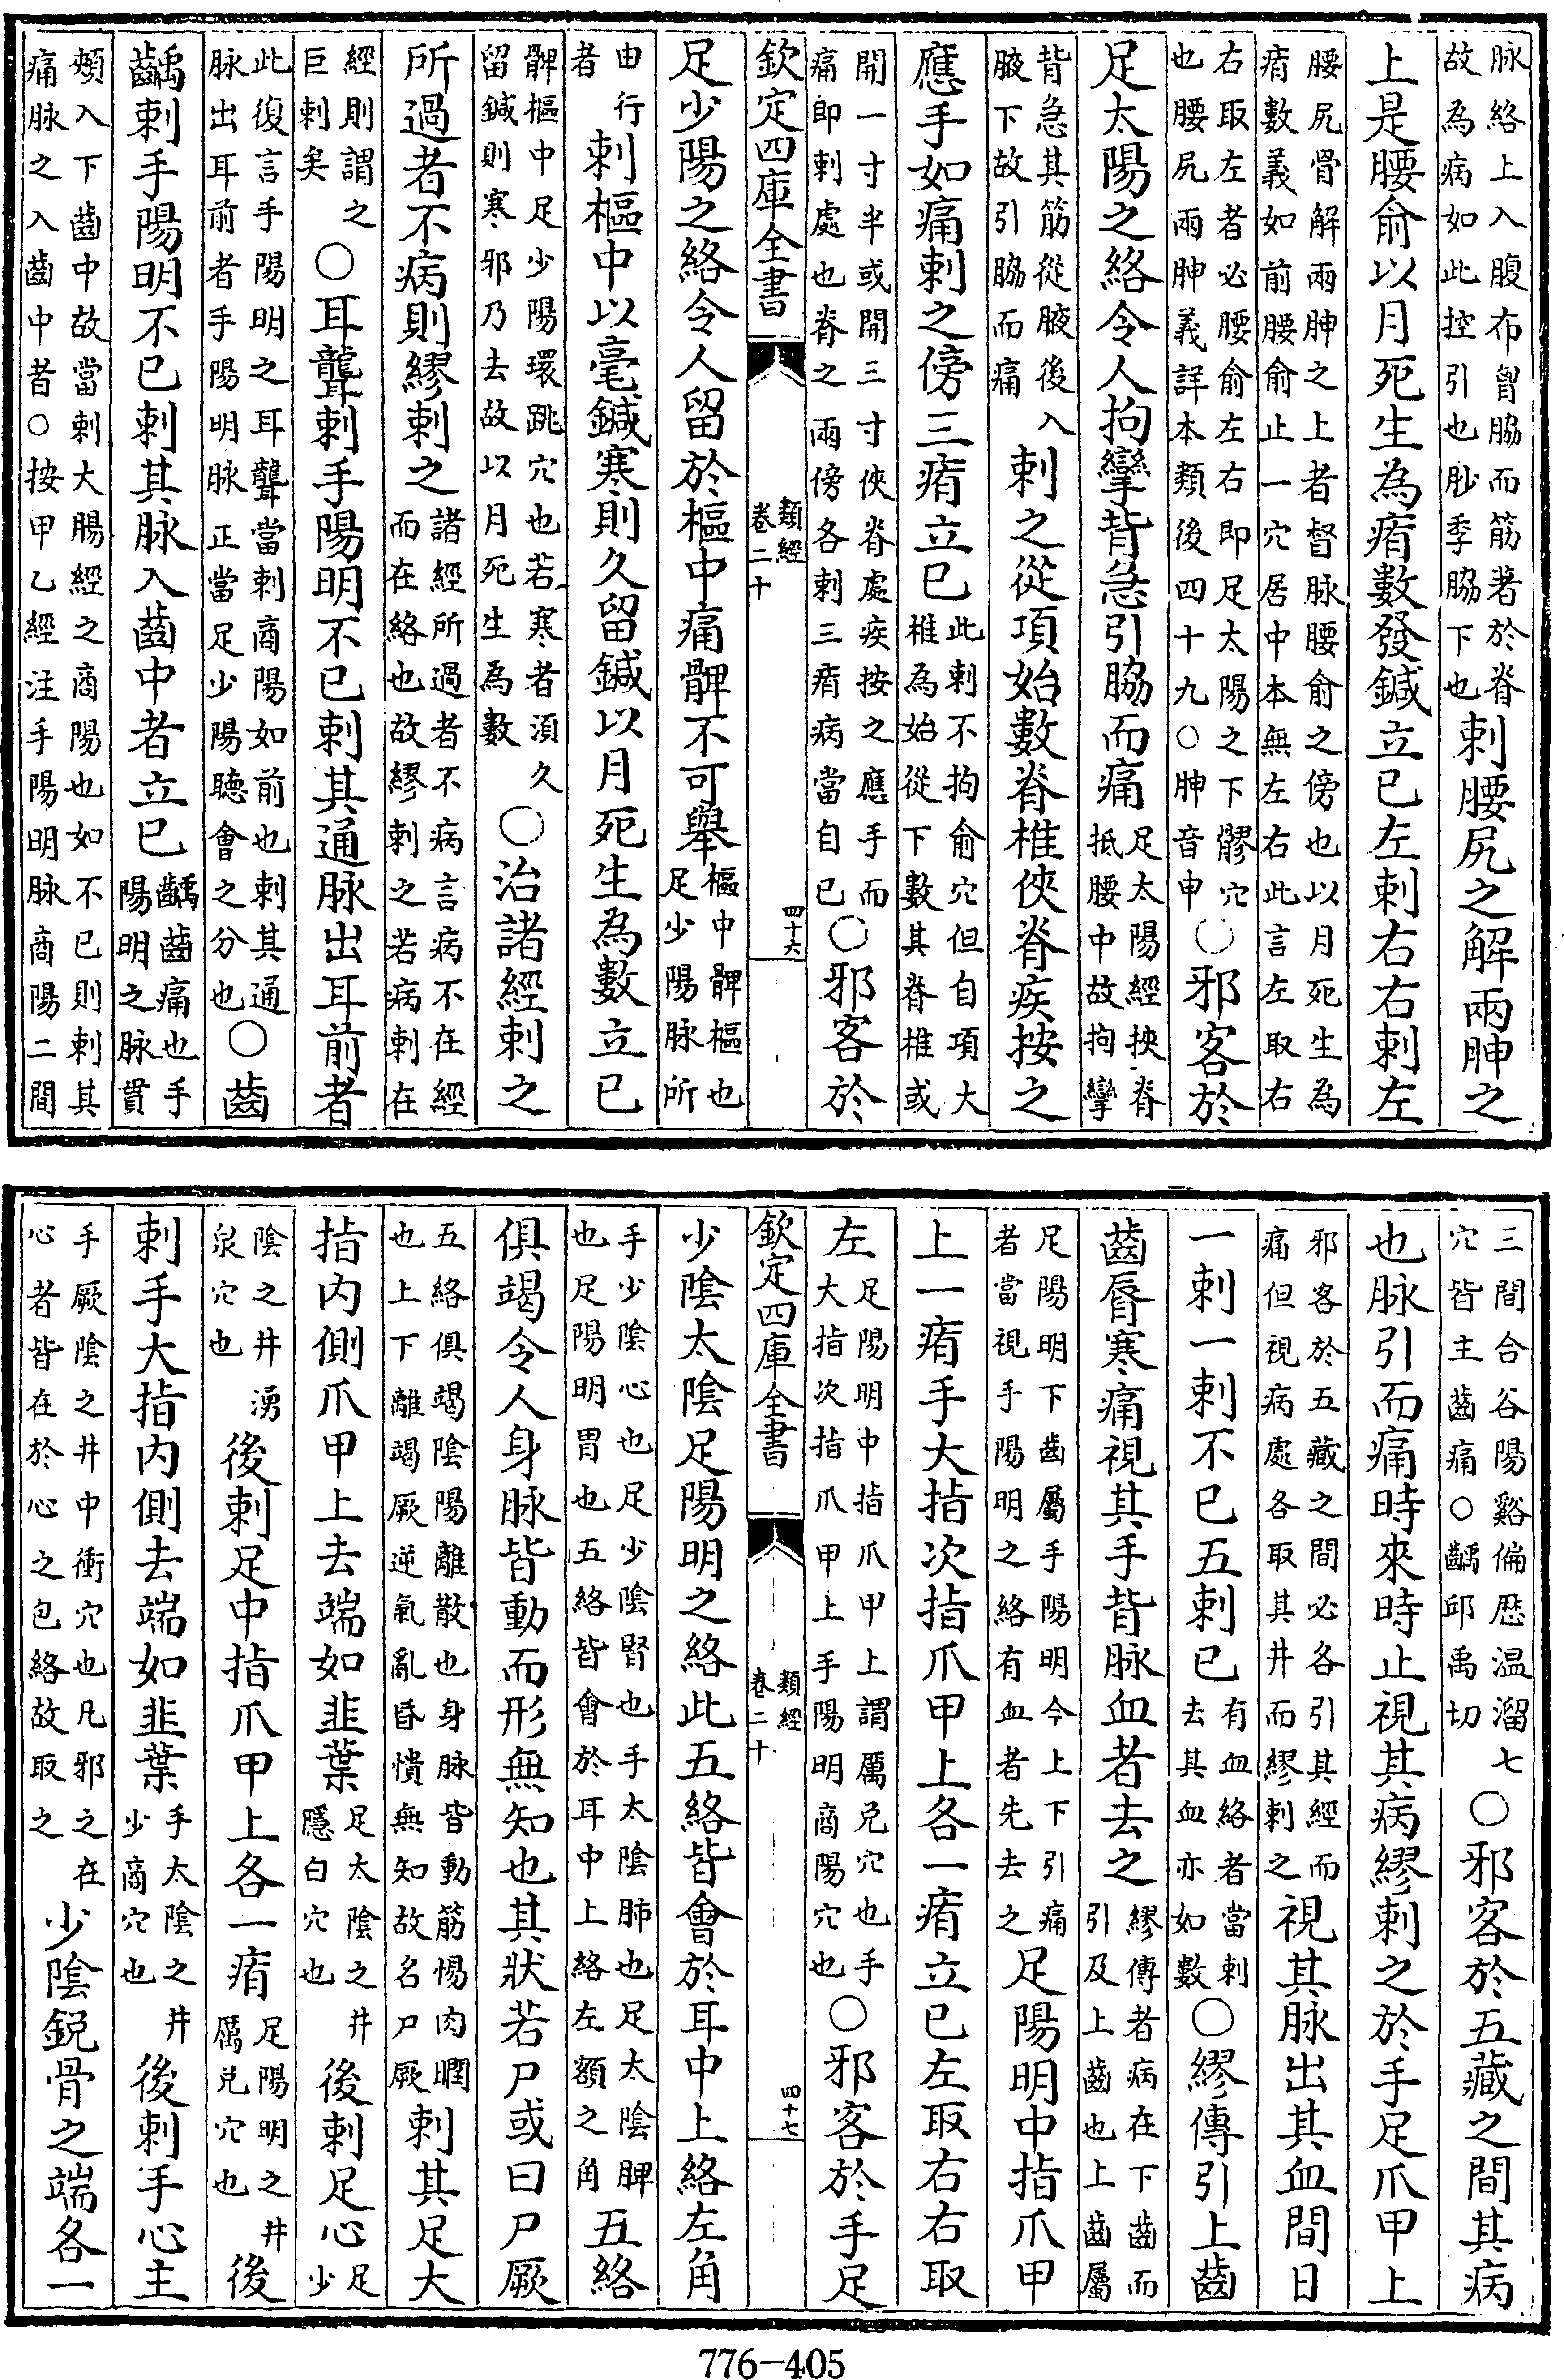 脉絡上入腹布胷脇而筋著於脊
故為病如此控引也䏚季脇下也
刺腰尻之解兩胂之
上是腰俞以月死生為痏數發鍼立已左刺右右刺左
腰尻骨解兩胂之上者督脉腰俞之傍也以月死生為
痏數義如前腰俞止一穴居中本無左右此言左取右
右取左者必腰俞左右即足太陽之下髎穴
也腰尻兩胂義詳本類後四十九○胂音申
○邪客於
足太陽之絡令人拘攣背急引脇而痛
足太陽經挾脊
抵腰中故拘攣
背急其筋從腋後入
腋下故引脇而痛
刺之從項始數脊椎俠脊疾按之
應手如痛刺之傍三痏立已
此刺不拘俞穴但自項大
椎為始從下數其脊椎或
開一寸半或開三寸俠脊處疾按之應手而
痛即刺處也脊之兩傍各刺三痏病當自已
○邪客於
欽定四庫全書
類經
卷二十
四十六
足少陽之絡令人留於樞中痛髀不可舉
樞中髀樞也
足少陽脉所
由行
者
刺樞中以毫鍼寒則久留鍼以月死生為數立已
髀樞中足少陽環跳穴也若寒者須久
留鍼則寒邪乃去故以月死生為數
○治諸經刺之
所過者不病則繆刺之
諸經所過者不病言病不在經
而在絡也故繆刺之若病刺在
經則謂之
巨刺矣
○耳聾刺手陽明不已刺其通脉出耳前者
此復言手陽明之耳聾當刺商陽如前也刺其通
脉出耳前者手陽明脉正當足少陽聽會之分也
○齒
齲刺手陽明不已刺其脉入齒中者立已
齲齒痛也手
陽明之脉貫
頰入下齒中故當刺大腸經之商陽也如不已則刺其
痛脉之入齒中者○按甲乙經注手陽明脉商陽二間
三間合谷陽谿偏歷溫溜七
穴皆主齒痛○齲邱禹切
○邪客於五藏之間其病
也脉引而痛時來時止視其病繆刺之於手足爪甲上
邪客於五藏之間必各引其經而
痛但視病處各取其井而繆刺之
視其脉出其血間日
一刺一刺不已五刺已
有血絡者當刺
去其血亦如數
○繆傳引上齒
齒脣寒痛視其手背脉血者去之
繆傳者病在下齒而
引及上齒也上齒屬
足陽明下齒屬手陽明今上下引痛
者當視手陽明之絡有血者先去之
足陽明中指爪甲
上一痏手大指次指爪甲上各一痏立已左取右右取
左
足陽明中指爪甲上謂厲兌穴也手
大指次指爪甲上手陽明商陽穴也
○邪客於手足
欽定四庫全書
類經
卷二十
四十七
少陰太陰足陽明之絡此五絡皆會於耳中上絡左角
手少陰心也足少陰腎也手太陰肺也足太陰脾
也足陽明胃也五絡皆會於耳中上絡左額之角
五絡
俱竭令人身脉皆動而形無知也其狀若尸或曰尸厥
五絡俱竭陰陽離散也身脉皆動筋惕肉瞤
也上下離竭厥逆氣亂昏憒無知故名尸厥
刺其足大
指內側爪甲上去端如韭葉
足太陰之井
隱白穴也
後刺足心
足
少
陰之井湧
泉穴也
後刺足中指爪甲上各一痏
足陽明之井
厲兌穴也
後
刺手大指內側去端如韭葉
手太陰之井
少商穴也
後刺手心主
手厥陰之井中衝穴也凡邪之在
心者皆在於心之包絡故取之
少陰銳骨之端各一
776-405